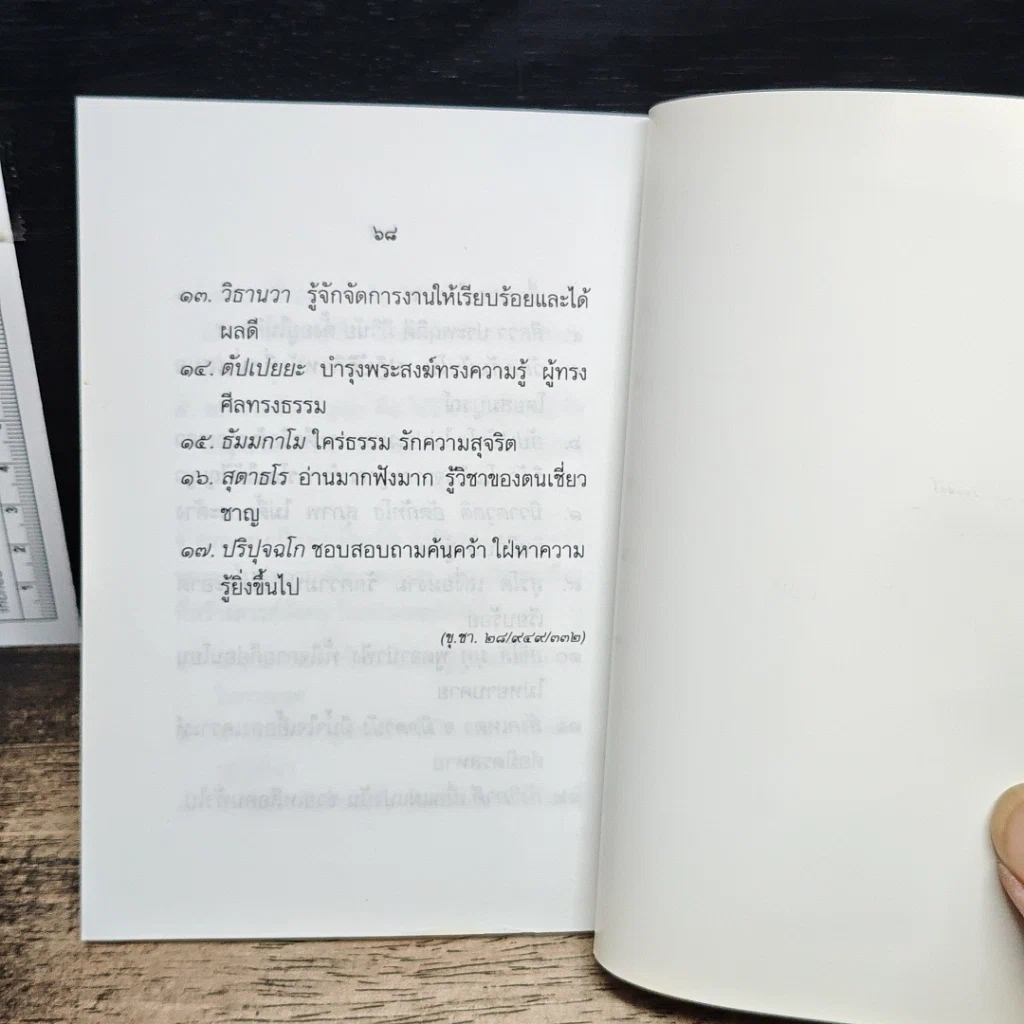 ๖๘
๑๓. วิธานวา รู้จักจัดการงานให้เรียบร้อยและได้
ผลดี
๑๔. ตัปเปยยะ บำรุงพระสงฆ์ทรงความรู้ ผู้ทรง
ศีลทรงธรรม
๑๕. ธัมมกาโม ใคร่ธรรม รักความสุจริต
๑๖. สุตาธโร อ่านมากฟังมาก รู้วิชาของตนเชี่ยว
ชาญ
๑๗. ปริปุจฉโก ชอบสอบถามค้นคว้า ใฝ่หาความ
รู้ยิ่งขึ้นไป
(ขุ.ชา. ๒๘/๙๔๙/๓๓๒)
4
3
2
1